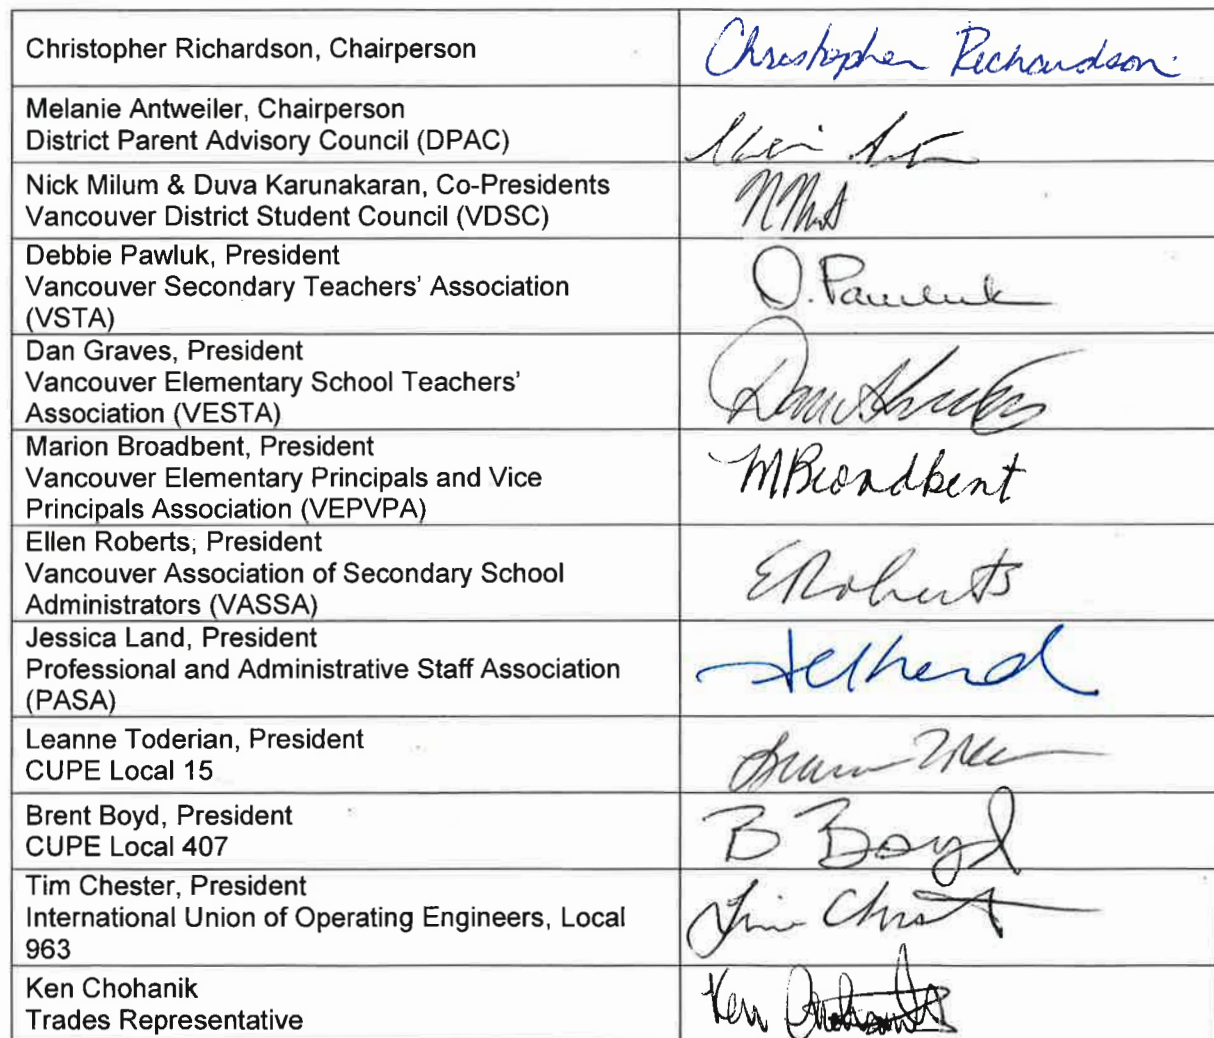 Christopher Richardson, Chairperson
Christopher Richardson
Melanie Antweiler, Chairperson
District Parent Advisory Council (DPAC)
Nick Milum & Duva Karunakaran, Co-Presidents
Vancouver District Student Council (VDSC)
Debbie Pawluk, President
Vancouver Secondary Teachers' Association
(VSTA)
D. Pawluk
Dan Graves, President
Vancouver Elementary School Teachers'
Association (VESTA)
Dan Graves
Marion Broadbent, President
Vancouver Elementary Principals and Vice
Principals Association (VEPVPA)
MBroadbent
Ellen Roberts, President
Vancouver Association of Secondary School
Administrators (VASSA)
ERoberts
Jessica Land, President
Professional and Administrative Staff Association
(PASA)
Leanne Toderian, President
CUPE Local 15
Brent Boyd, President
CUPE Local 407
B Boyd
Tim Chester, President
International Union of Operating Engineers, Local
963
Tim
Ken Chohanik
Trades Representative
Ken